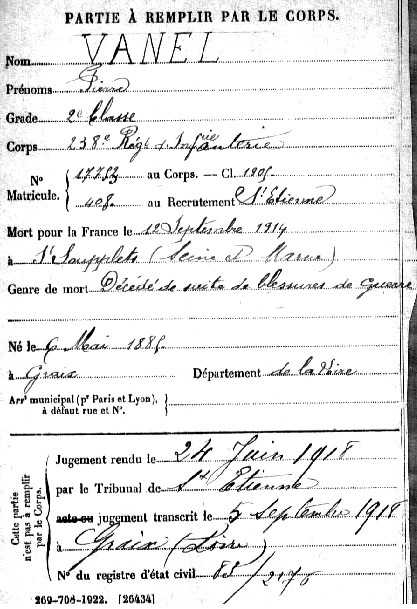 PARTIE À REMPLIR PAR LE CORPS.
Nom VANEL
Prénoms Pierre
Grade 2e Classe
Corps 238e Régt d'Infanterie
No Matricule. { 17753 au Corps. — Cl. 1905
408 au Recrutement St Etienne
Mort pour la France le 12 Septembre 1914
à St Soupplets (Seine et Marne)
Genre de mort Décédé de suite de blessures de guerre
Né le 6 Mai 1885
à Graix Département de la Loire
Arrt municipal (pr Paris et Lyon),
à défaut rue et No.
Cette partie n'est pas à remplir par le Corps.
Jugement rendu le 24 Juin 1918
par le Tribunal de St Etienne
acte ou jugement transcrit le 5 Septembre 1918
à Graix (Loire)
No du registre d'état civil
269-708-1922. [26434]